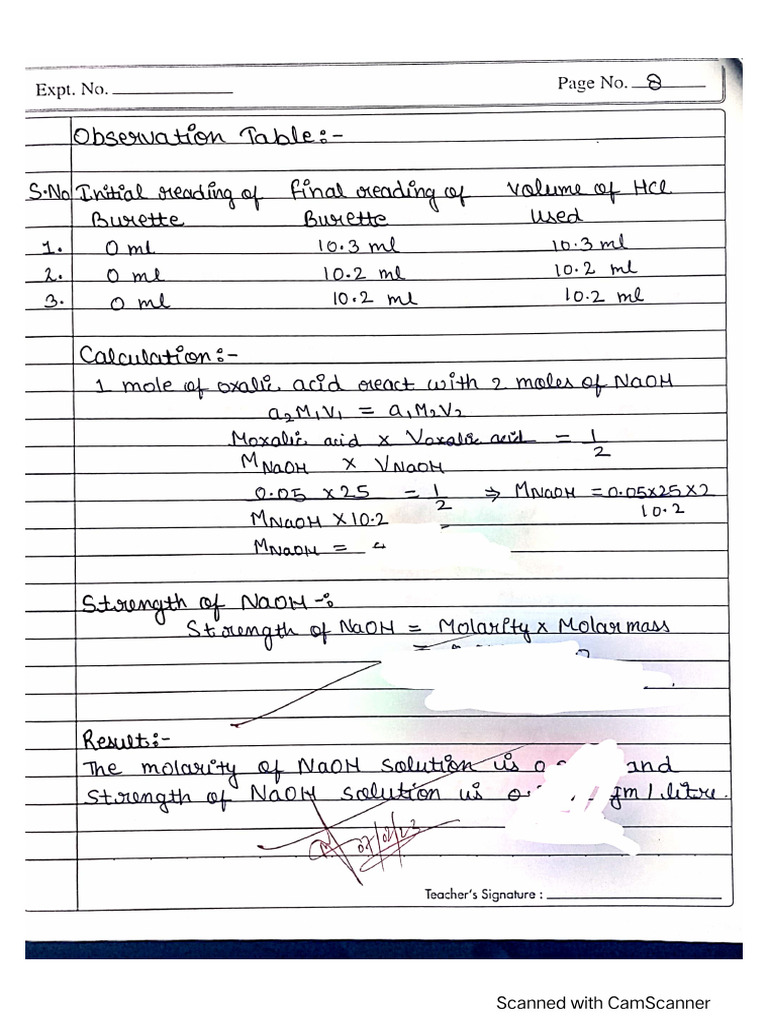 Expt. No.
Page No. 8
Observation Table:-
S.No Initial reading of Final reading of Volume of HCl
Burette Burette Used
1. 0 ml 10.3 ml 10.3 ml
2. 0 ml 10.2 ml 10.2 ml
3. 0 ml 10.2 ml 10.2 ml
Calculation:-
1 mole of oxalic acid react with 2 moles of NaOH
a₂M₁V₁ = a₁M₂V₂
Moxalic acid x Voxalic acid = 1/2
MNaOH x VNaOH
0.05 x 25 = 1/2 ⇒ MNaOH = 0.05x25x2
MNaOH x 10.2 10.2
MNaOH =
Strength of NaOH -:
Strength of NaOH = Molarity x Molar mass
=
Result:-
The molarity of NaOH solution is and
Strength of NaOH solution is gm/litre.
07/02/23
Teacher's Signature :
Scanned with CamScanner